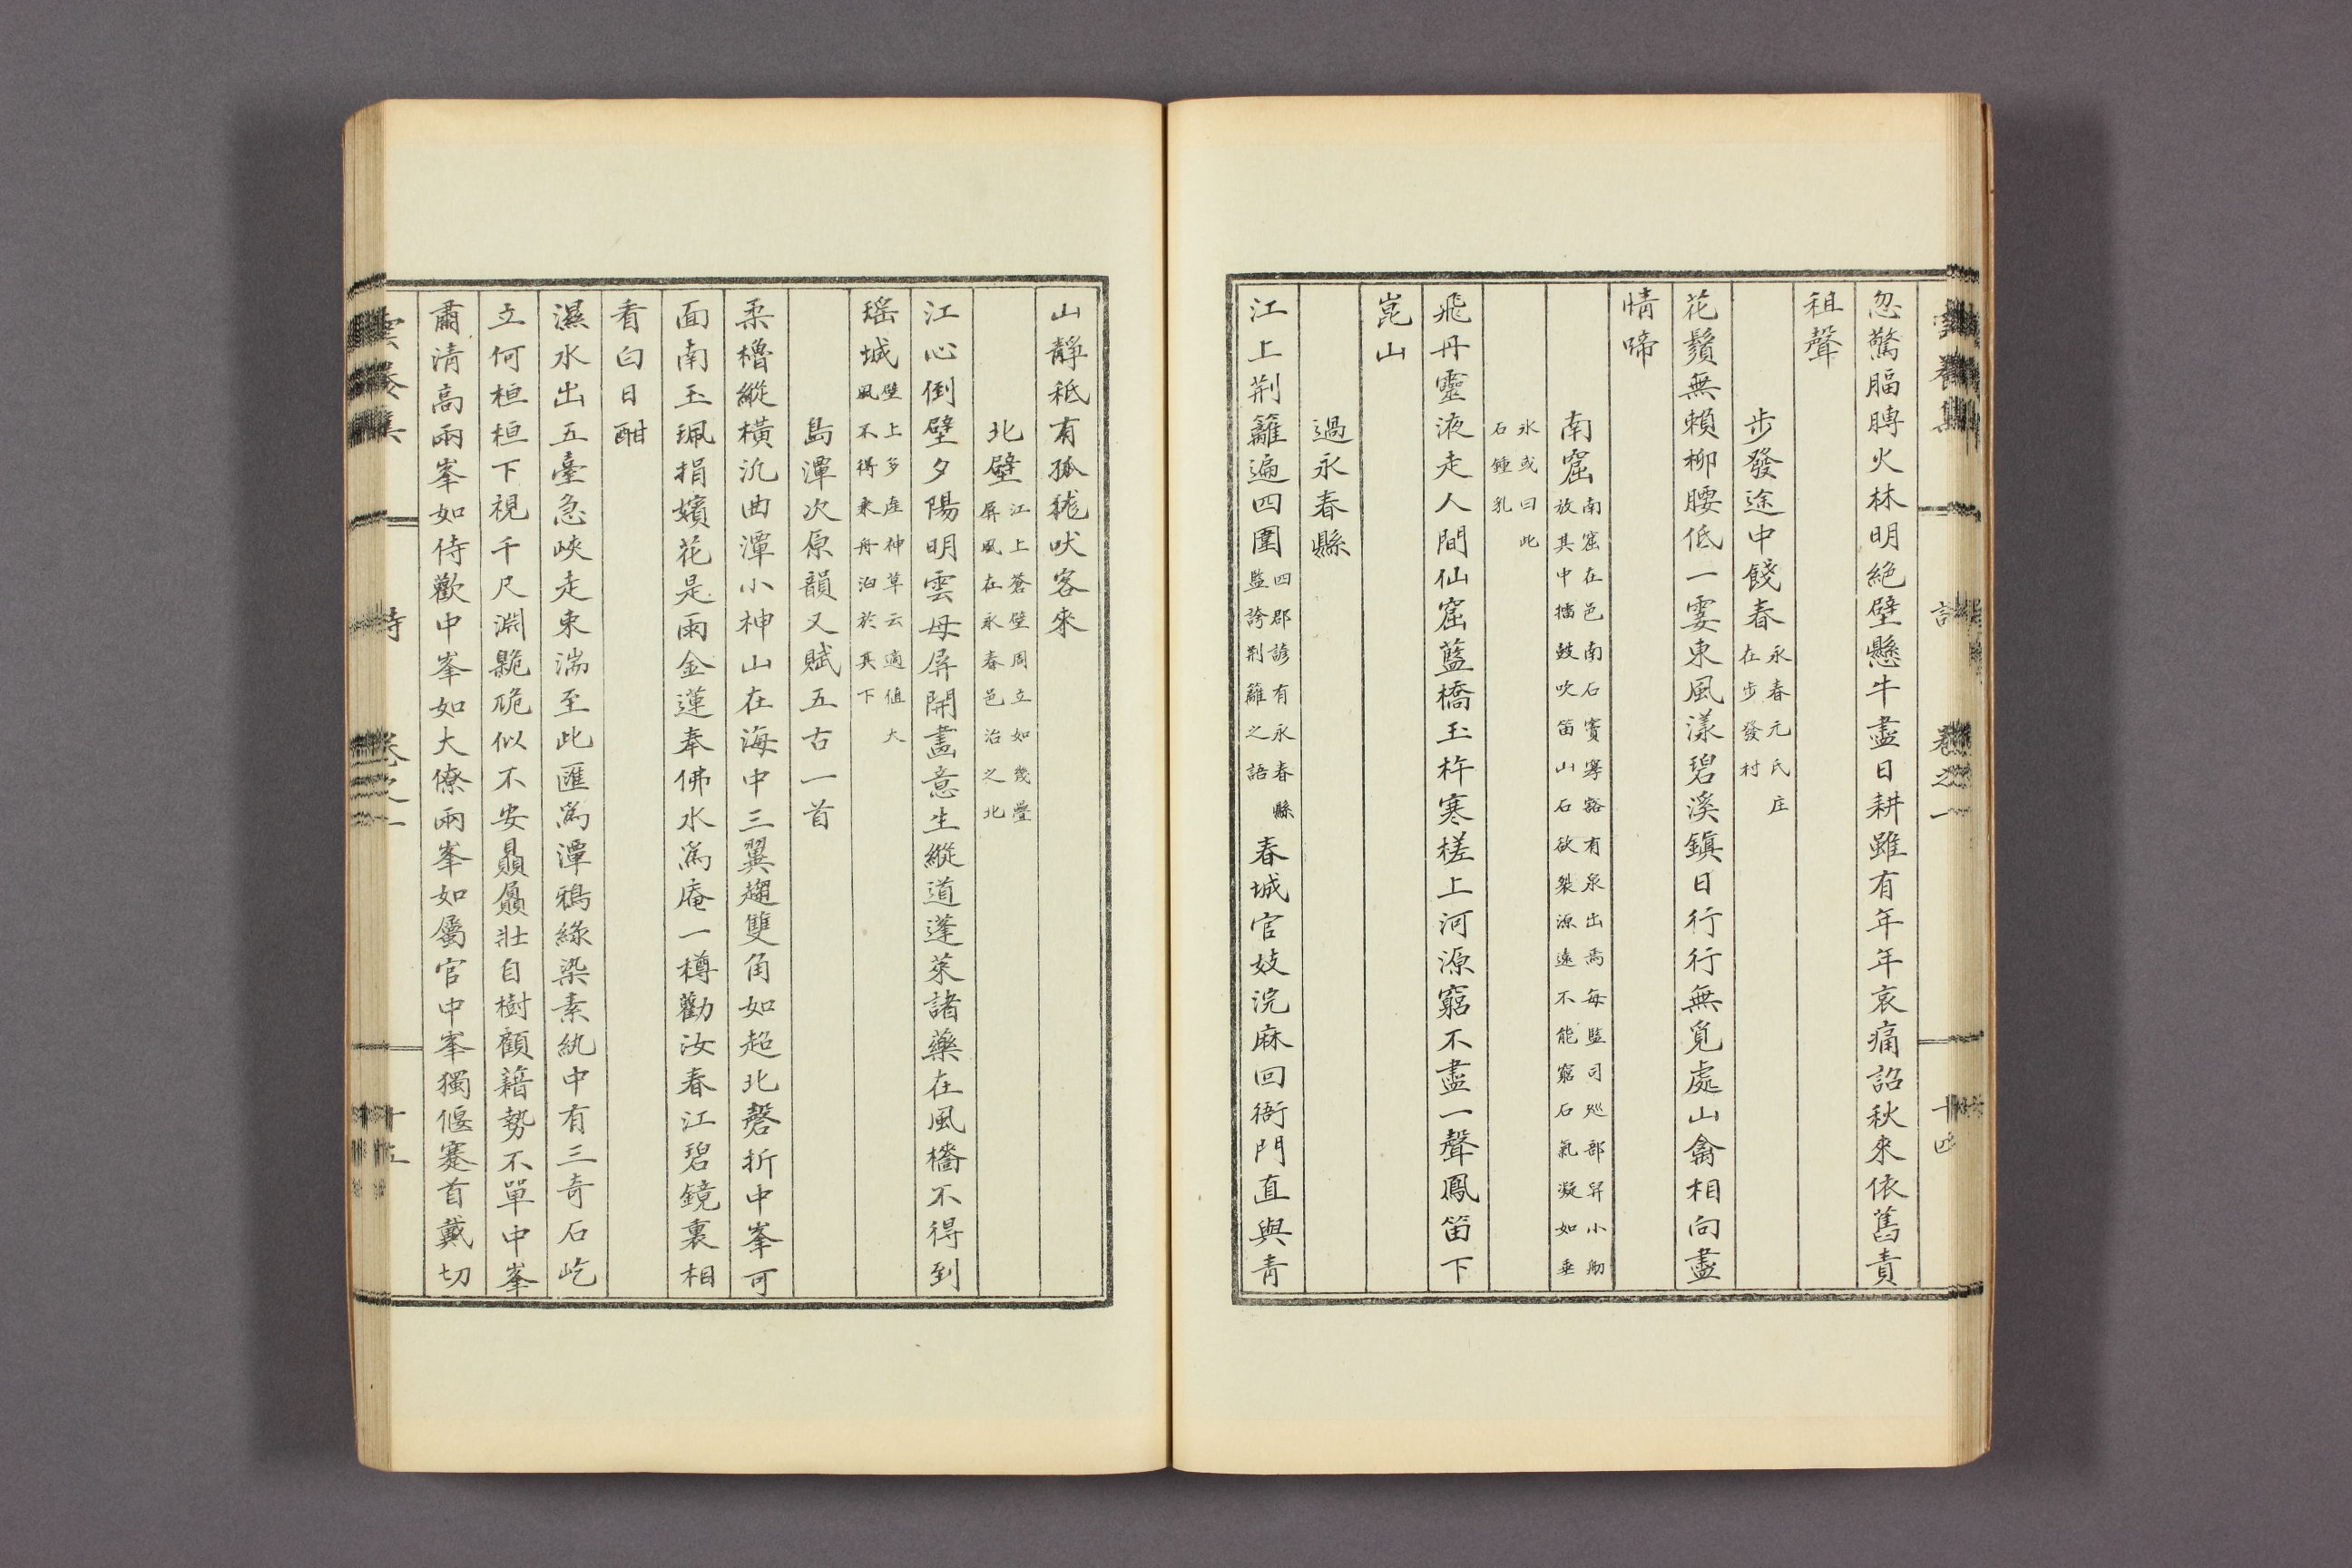 忽驚腷膊火林明絶壁懸牛盡日耕雖有年年哀痛詔秋來依舊責
租聲
步發途中餞春永春元氏庄在步發村
花鬚無賴柳腰低一霎東風漾碧溪鎭日行行無覓處山禽相向盡
情啼
南窟南窟在邑南石竇寥豁有泉出焉每監司巡部舁小舠放其中擂鼓吹笛山石欲裂源遠不能窮石氣凝如垂
氷或曰此石鍾乳
飛丹靈液走人間仙窟藍橋玉杵寒槎上河源窮不盡一聲鳳笛下
崑山
過永春縣
江上荆籬遍四圍四郡諺有永春縣監誇荆籬之語春城官妓浣麻回衙門直與青
山靜秪有孤狵吠客來
北壁江上蒼壁周立如幾疊屛風在永春邑治之北
江心倒壁夕陽明雲母屛開畵意生縱道蓬萊諸藥在風檣不得到
瑶城壁上多産神草云適値大風不得乘舟泊於其下
島潭次原韻又賦五古一首
柔櫓縱橫氿曲潭小神山在海中三翼趨雙角如超北磬折中峯可
面南玉珮捐嬪花是雨金蓮奉佛水爲庵一樽勸汝春江碧鏡裏相
看白日酣
濕水出五臺急峽走東湍至此匯爲潭鴉綠染素紈中有三奇石屹
立何桓桓下視千尺淵臲卼似不安贔屭壯自樹顧藉勢不單中峯
肅淸高兩峯如侍歡中峯如大僚兩峯如屬官中峯獨偃蹇首戴切